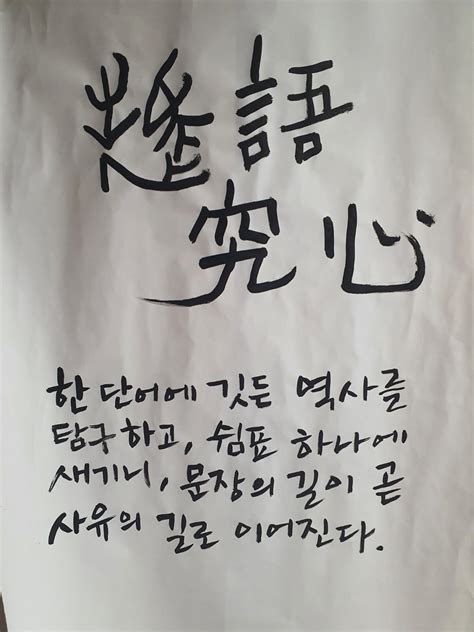 語
究心
한 단어에 깃든 역사를
탐구하고, 쉼표 하나에
새기니, 문장의 길이 곧
사유의 길로 이어진다.